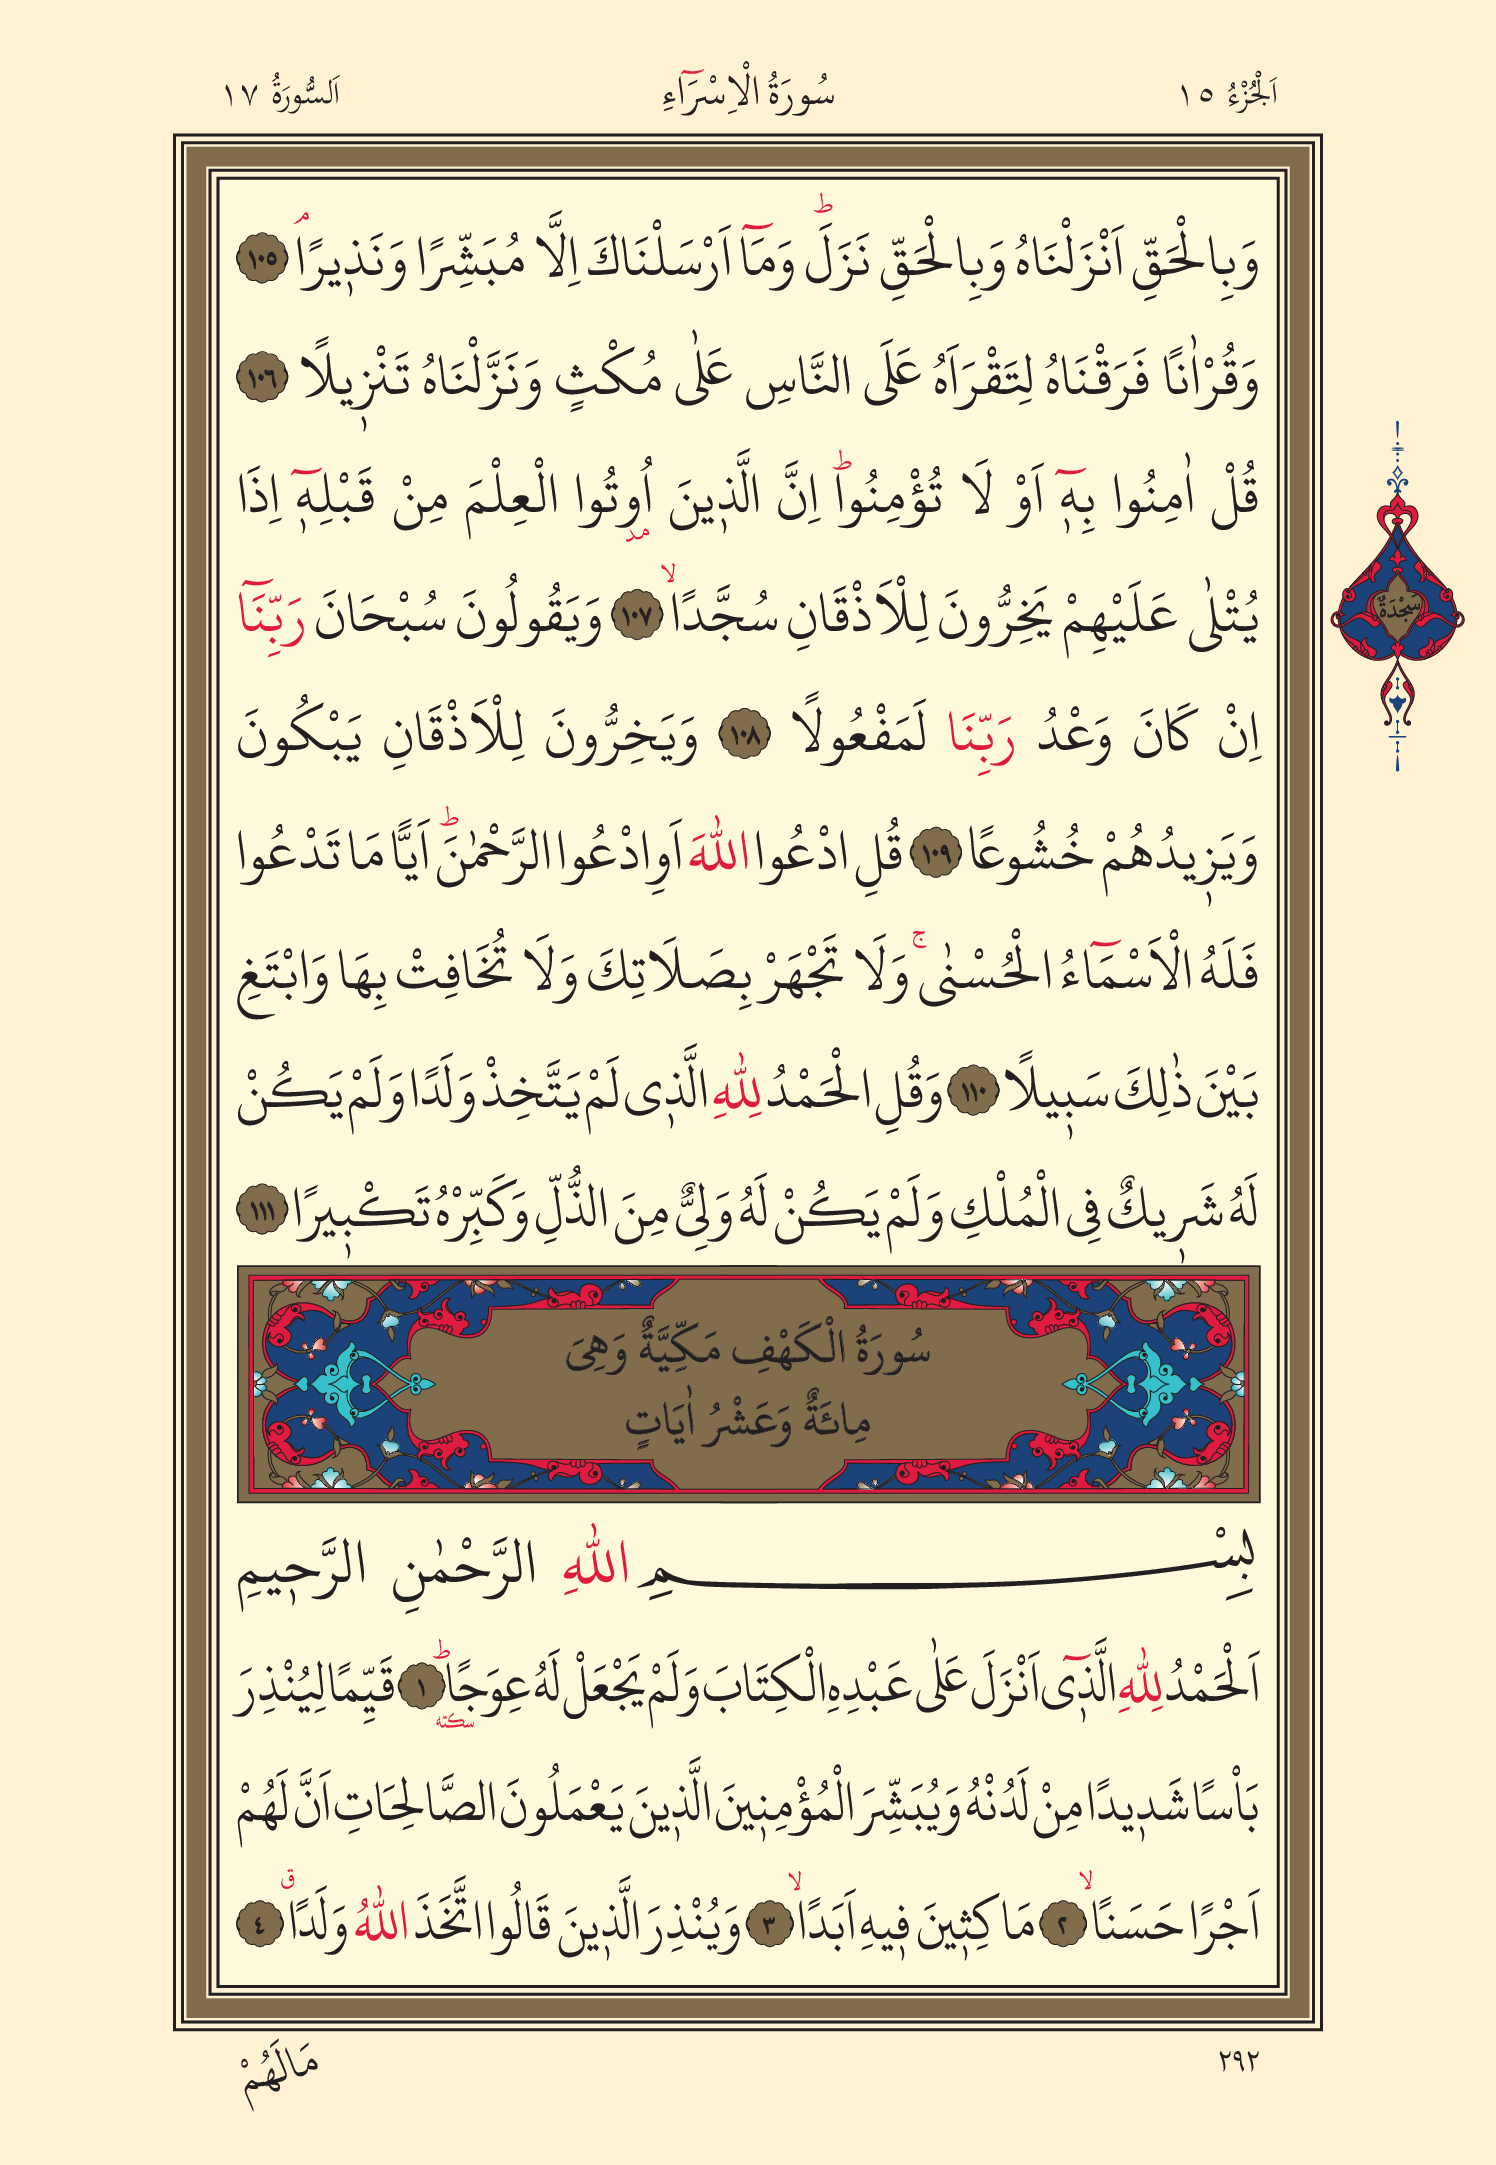 اَلْجُزْءُ ١٥ سُورَةُ الْاِسْرَٓاءِ اَلسُّورَةُ ١٧
وَبِالْحَقِّ اَنْزَلْنَاهُ وَبِالْحَقِّ نَزَلَۜ وَمَٓا اَرْسَلْنَاكَ اِلَّا مُبَشِّرًا وَنَذ۪يرًاۢ ١٠٥
وَقُرْاٰنًا فَرَقْنَاهُ لِتَقْرَاَهُ عَلَى النَّاسِ عَلٰى مُكْثٍ وَنَزَّلْنَاهُ تَنْز۪يلًا ١٠٦
قُلْ اٰمِنُوا بِه۪ٓ اَوْ لَا تُؤْمِنُواۜ اِنَّ الَّذ۪ينَ اُو۫تُوا الْعِلْمَ مِنْ قَبْلِه۪ٓ اِذَا
يُتْلٰى عَلَيْهِمْ يَخِرُّونَ لِلْاَذْقَانِ سُجَّدًاۙ ١٠٧ وَيَقُولُونَ سُبْحَانَ رَبِّنَٓا
اِنْ كَانَ وَعْدُ رَبِّنَا لَمَفْعُولًا ١٠٨ وَيَخِرُّونَ لِلْاَذْقَانِ يَبْكُونَ
وَيَز۪يدُهُمْ خُشُوعًا ١٠٩ قُلِ ادْعُوا اللّٰهَ اَوِ ادْعُوا الرَّحْمٰنَۜ اَيًّا مَا تَدْعُوا
فَلَهُ الْاَسْمَٓاءُ الْحُسْنٰىۚ وَلَا تَجْهَرْ بِصَلَاتِكَ وَلَا تُخَافِتْ بِهَا وَابْتَغِ
بَيْنَ ذٰلِكَ سَب۪يلًا ١١٠ وَقُلِ الْحَمْدُ لِلّٰهِ الَّذ۪ى لَمْ يَتَّخِذْ وَلَدًا وَلَمْ يَكُنْ
لَهُ شَر۪يكٌ فِى الْمُلْكِ وَلَمْ يَكُنْ لَهُ وَلِىٌّ مِنَ الذُّلِّ وَكَبِّرْهُ تَكْب۪يرًا ١١١
سَجْدَةٌ
سُورَةُ الْكَهْفِ مَكِّيَّةٌ وَهِىَ
مِائَةٌ وَعَشْرُ اٰيَاتٍ
بِسْمِ اللّٰهِ الرَّحْمٰنِ الرَّح۪يمِ
اَلْحَمْدُ لِلّٰهِ الَّذ۪ٓى اَنْزَلَ عَلٰى عَبْدِهِ الْكِتَابَ وَلَمْ يَجْعَلْ لَهُ عِوَجًاۜ سكته ١ قَيِّمًا لِيُنْذِرَ
بَاْسًا شَد۪يدًا مِنْ لَدُنْهُ وَيُبَشِّرَ الْمُؤْمِن۪ينَ الَّذ۪ينَ يَعْمَلُونَ الصَّالِحَاتِ اَنَّ لَهُمْ
اَجْرًا حَسَنًاۙ ٢ مَاكِث۪ينَ ف۪يهِ اَبَدًاۙ ٣ وَيُنْذِرَ الَّذ۪ينَ قَالُوا اتَّخَذَ اللّٰهُ وَلَدًاۗ ٤
٢٩٢ مَالَهُمْ